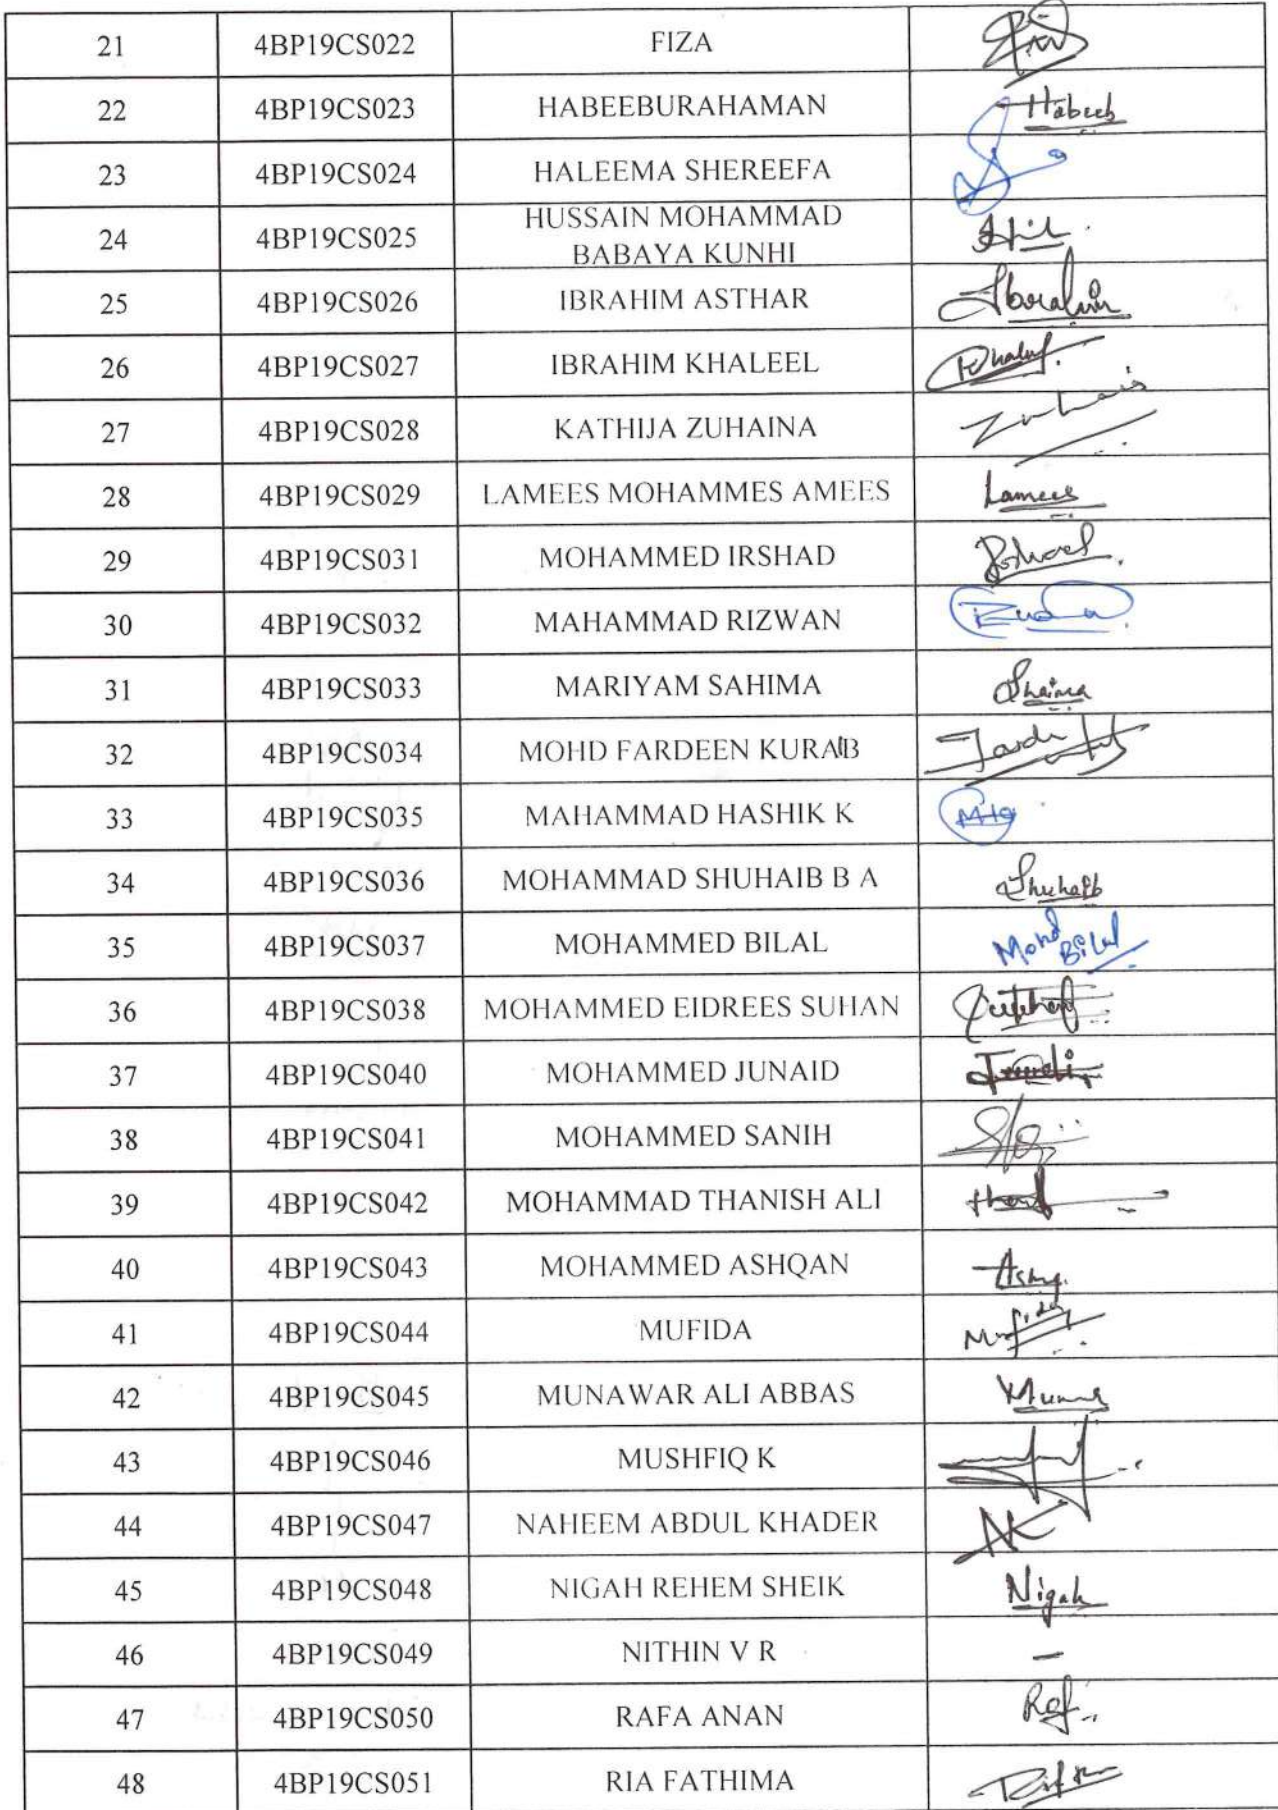 21 4BP19CS022 FIZA
22 4BP19CS023 HABEEBURAHAMAN Habeeb
23 4BP19CS024 HALEEMA SHEREEFA
24 4BP19CS025 HUSSAIN MOHAMMAD
BABAYA KUNHI
25 4BP19CS026 IBRAHIM ASTHAR Ibrahim
26 4BP19CS027 IBRAHIM KHALEEL
27 4BP19CS028 KATHIJA ZUHAINA
28 4BP19CS029 LAMEES MOHAMMES AMEES Lamees
29 4BP19CS031 MOHAMMED IRSHAD
30 4BP19CS032 MAHAMMAD RIZWAN
31 4BP19CS033 MARIYAM SAHIMA
32 4BP19CS034 MOHD FARDEEN KURAIB
33 4BP19CS035 MAHAMMAD HASHIK K
34 4BP19CS036 MOHAMMAD SHUHAIB B A Shuhaib
35 4BP19CS037 MOHAMMED BILAL Mohd Bilal
36 4BP19CS038 MOHAMMED EIDREES SUHAN
37 4BP19CS040 MOHAMMED JUNAID
38 4BP19CS041 MOHAMMED SANIH
39 4BP19CS042 MOHAMMAD THANISH ALI
40 4BP19CS043 MOHAMMED ASHQAN
41 4BP19CS044 MUFIDA Mufida
42 4BP19CS045 MUNAWAR ALI ABBAS
43 4BP19CS046 MUSHFIQ K
44 4BP19CS047 NAHEEM ABDUL KHADER
45 4BP19CS048 NIGAH REHEM SHEIK Nigah
46 4BP19CS049 NITHIN V R –
47 4BP19CS050 RAFA ANAN
48 4BP19CS051 RIA FATHIMA